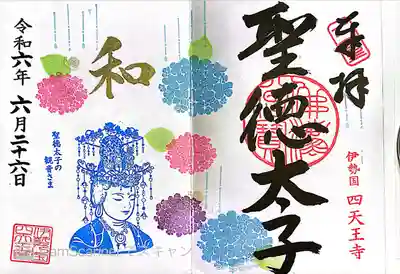 奉拝
聖徳太子
伊勢国 四天王寺
和
聖徳太子の
観音さま
令和六年 六月二十六日
CamScanner でスキャン